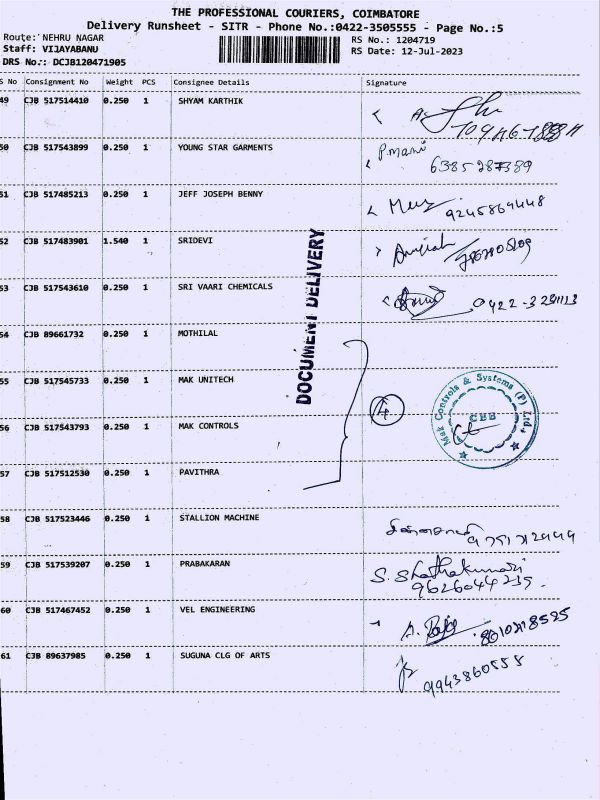 THE PROFESSIONAL COURIERS, COIMBATORE
Delivery Runsheet - SITR - Phone No.:0422-3505555 - Page No.:5
Route: NEHRU NAGAR RS No.: 1204719
Staff: VIJAYABANU RS Date: 12-Jul-2023
DRS No.: DCJB120471905
S No Consignment No Weight PCS Consignee Details Signature
49 CJB 517514410 0.250 1 SHYAM KARTHIK
50 CJB 517543899 0.250 1 YOUNG STAR GARMENTS P.mani
6385287389
51 CJB 517485213 0.250 1 JEFF JOSEPH BENNY 9245864448
52 CJB 517483901 1.540 1 SRIDEVI
53 CJB 517543610 0.250 1 SRI VAARI CHEMICALS
54 CJB 89661732 0.250 1 MOTHILAL
DOCUMENT DELIVERY
55 CJB 517545733 0.250 1 MAK UNITECH
56 CJB 517543793 0.250 1 MAK CONTROLS 4
Mak Controls & Systems (P) Ltd
CBB
57 CJB 517512530 0.250 1 PAVITHRA
58 CJB 517523446 0.250 1 STALLION MACHINE
59 CJB 517539207 0.250 1 PRABAKARAN
9626044235
60 CJB 517467452 0.250 1 VEL ENGINEERING
61 CJB 89637985 0.250 1 SUGUNA CLG OF ARTS
9943860558